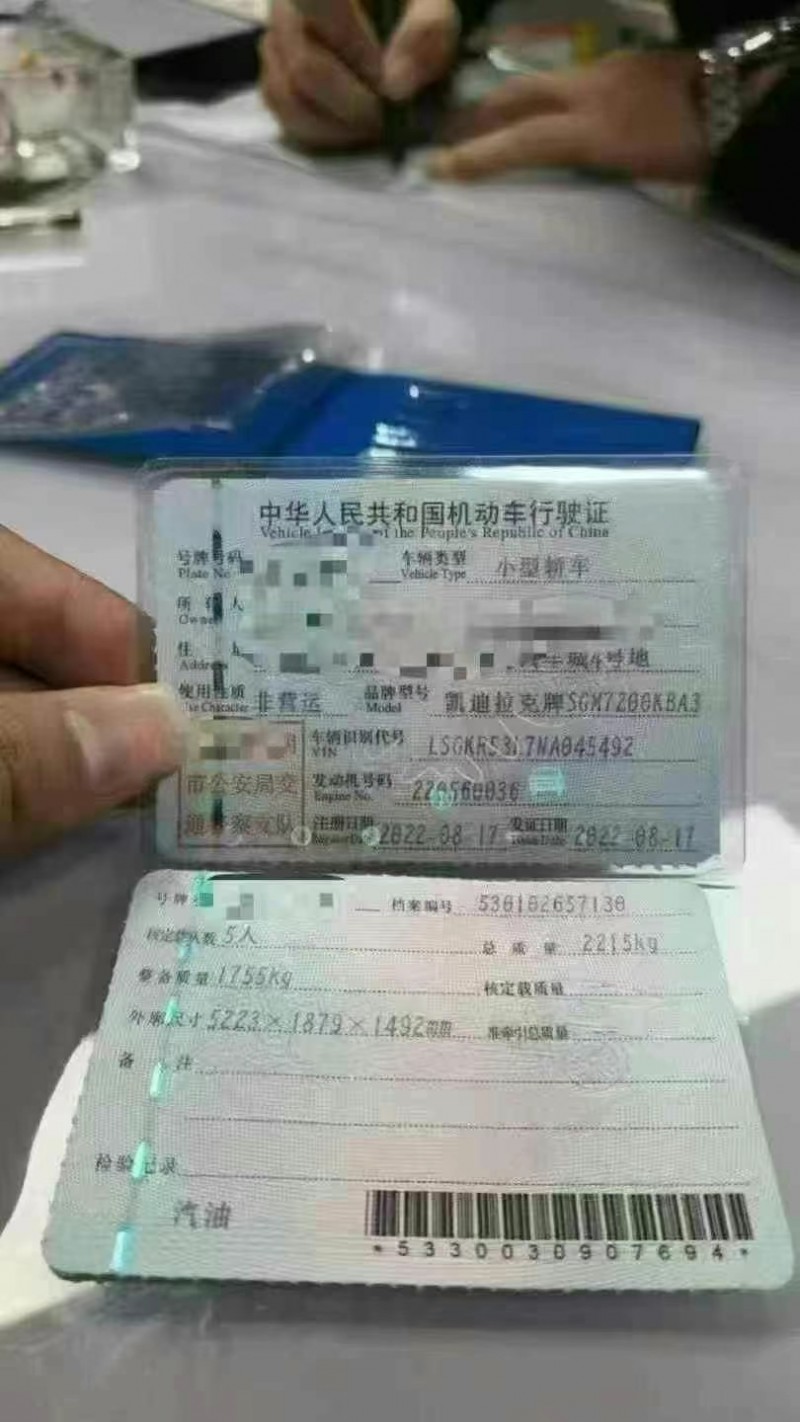 中华人民共和国机动车行驶证
Vehicle of the People's Republic of China
号牌号码 车辆类型 小型轿车
Plate No. Vehicle Type
所有人
Owner
住 址 号地
Address
使用性质 非营运 品牌型号 凯迪拉克牌SGM7200KBA3
Use Character Model
车辆识别代号 LSGKR53L7NA045492
VIN
市公安局交 发动机号码 220560036
Engine No.
通警察支队 注册日期 2022-08-17 发证日期 2022-08-17
Register Date Issue Date
号牌 档案编号 530102657130
核定载人数 5人 总质量 2215kg
整备质量 1755kg 核定载质量
外廓尺寸 5223×1879×1492mm 准牵引总质量
备 注
检验记录
汽油
*5330030907694*